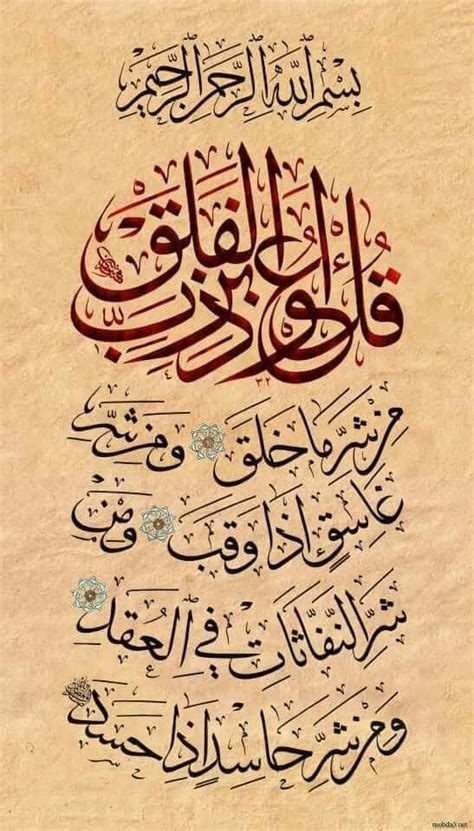 بِسْمِ اللّٰهِ الرَّحْمٰنِ الرَّحِيْمِ
قُلْ أَعُوذُ بِرَبِّ الْفَلَقِ
مِنْ شَرِّ مَا خَلَقَ وَمِنْ شَرِّ
غَاسِقٍ إِذَا وَقَبَ وَمِنْ
شَرِّ النَّفَّاثَاتِ فِي الْعُقَدِ
وَمِنْ شَرِّ حَاسِدٍ إِذَا حَسَدَ
mobda3.net